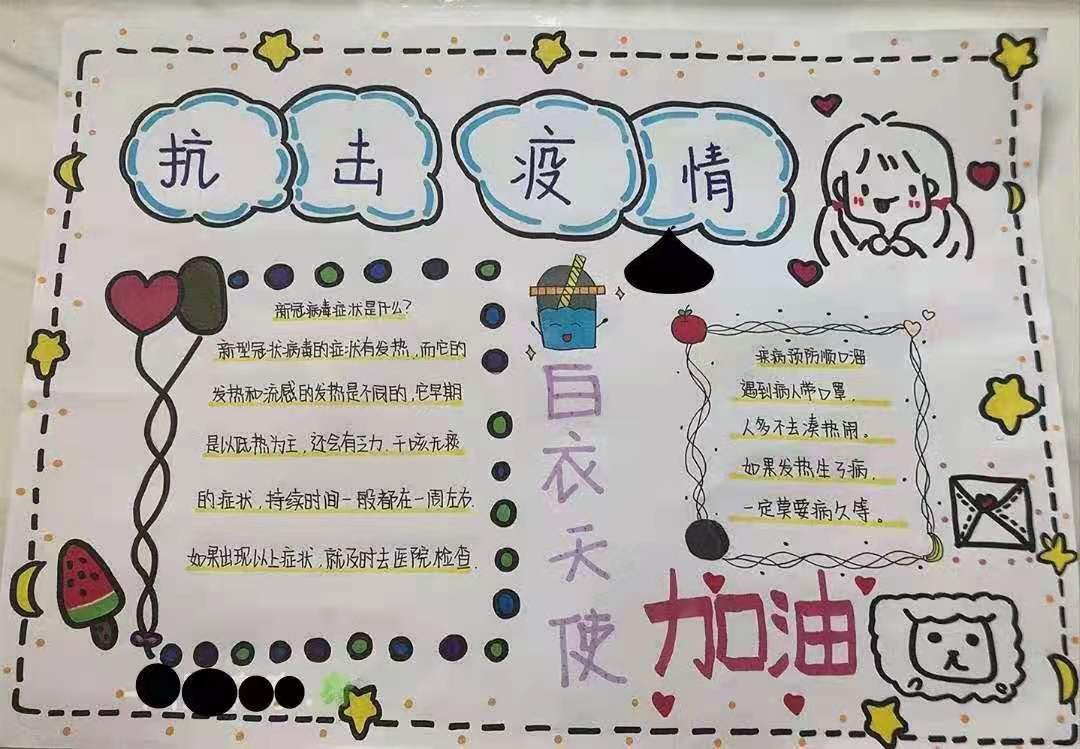 抗击疫情
新冠病毒症状是什么?
新型冠状病毒的症状有发热,而它的
发热和流感的发热是不同的,它早期
是以低热为主,还会有乏力.干咳无痰
的症状,持续时间一般都在一周左右.
如果出现以上症状,就及时去医院检查.
白衣天使
疾病预防顺口溜
遇到病人带口罩,
人多不去凑热闹。
如果发热生了病,
一定莫要病久等。
加油